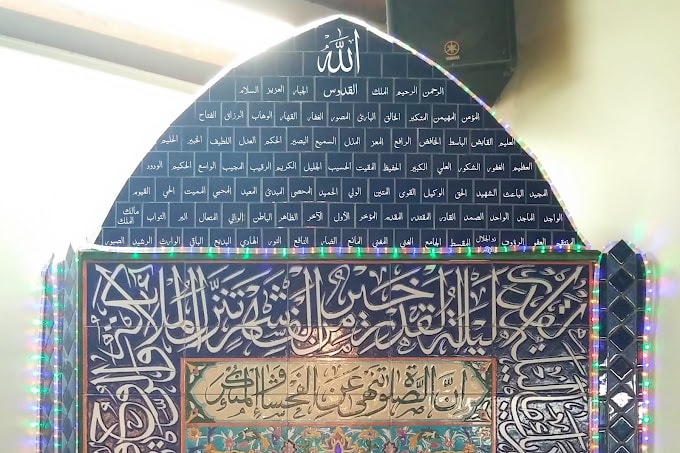 الله
الرحمن الرحيم الملك القدوس الجبار العزيز السلام
المؤمن المهيمن المتكبر الخالق البارئ المصور الغفار القهار الوهاب الرزاق الفتاح
العليم القابض الباسط الخافض الرافع المعز المذل السميع البصير الحكم العدل اللطيف الخبير الحليم
العظيم الغفور الشكور العلي الكبير الحفيظ المقيت الحسيب الجليل الكريم الرقيب المجيب الواسع الحكيم الودود
المجيد الباعث الشهيد الحق الوكيل القوى المتين الولي الحميد المحصي المبدئ المعيد المحيي المميت الحي القيوم
الواجد الماجد الواحد الصمد القادر المقتدر المقدم المؤخر الأول الآخر الظاهر الباطن الوالي المتعال البر التواب مالك الملك
المنتقم العفو الرؤوف ذو الجلال المقسط الجامع الغني المغني المانع الضار النافع النور الهادي البديع الباقي الوارث الرشيد الصبور
ليلة القدر خير من الف شهر تنزل الملائكة والروح
ان الصلوة تنهى عن الفحشاء والمنكر
YAMAHA